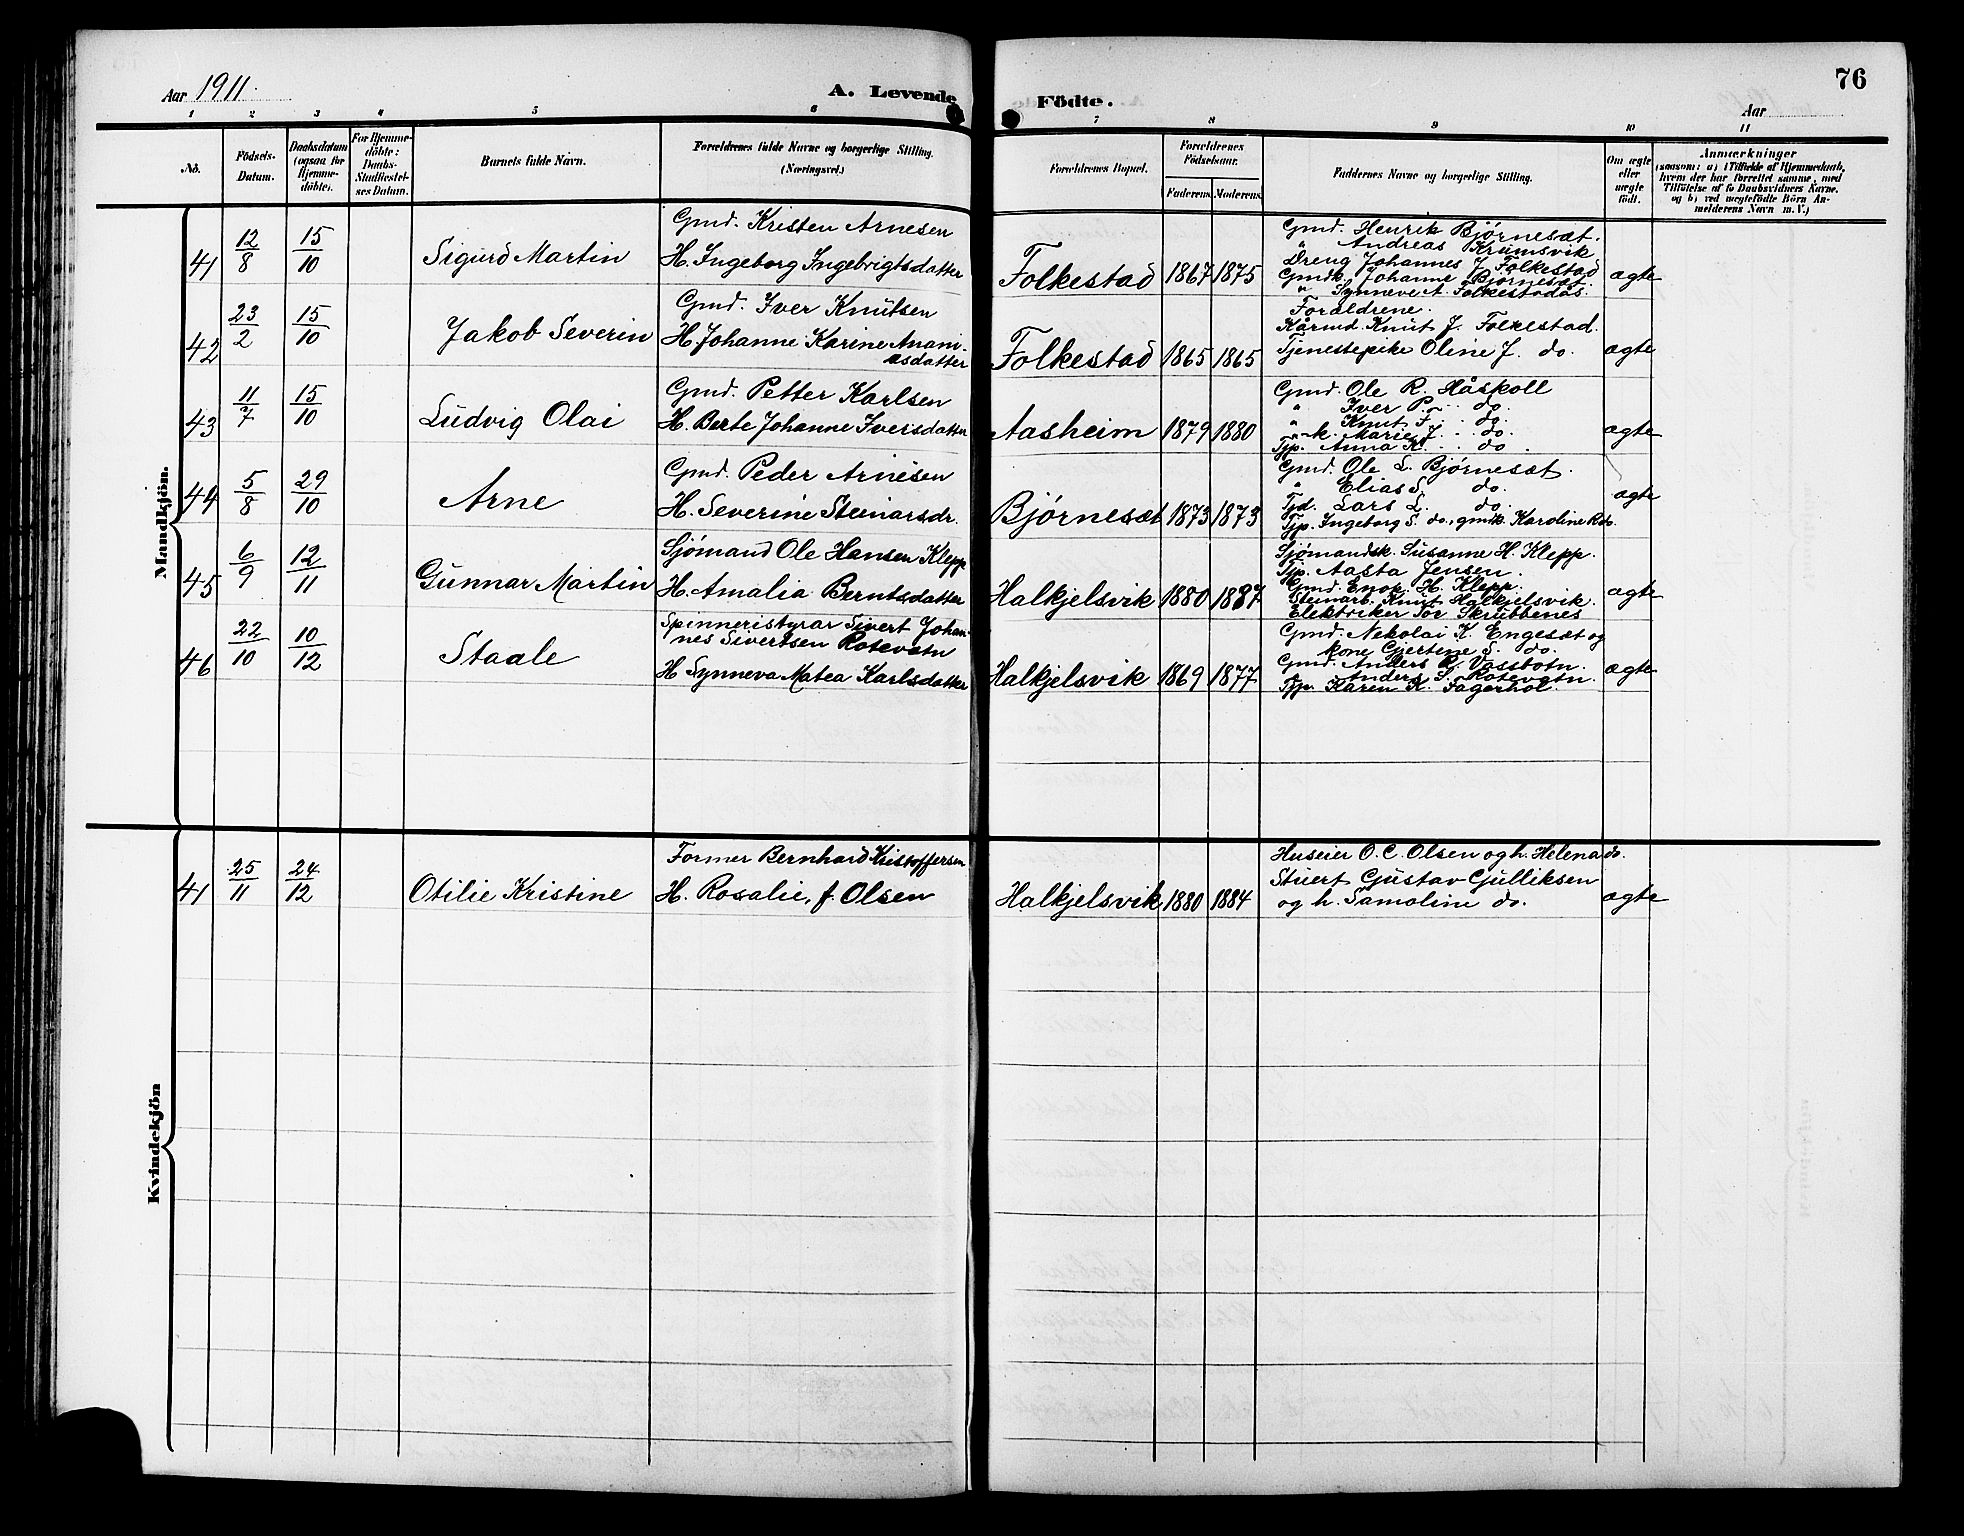 Aar 1911.
A. Levende Födte.
76
Aar
1 2 3 4 5 6 7 8 9 10 11
No.
Födsels-Datum.
Daabsdatum (ogsaa for Hjemmedöbte).
For Hjemmedöbte: Daabs-Stadfæstelses Datum.
Barnets fulde Navn.
Forældrenes fulde Navne og borgerlige Stilling. (Næringsvei.)
Forældrenes Bopæl.
Forældrenes Födselsaar.
Faderens. Moderens.
Faddernes Navne og borgerlige Stilling.
Om ægte eller uægte födt.
Anmærkninger
(saasom: a) i Tilfælde af Hjemmedaab, hvem der har forrettet samme, med Tilföielse af to Daabsvidners Navne, og b) ved uægtefödte Börn Anmelderens Navn m. V.)
Mandkjön.
41 12/8 15/10 Sigurd Martin
Gmd. Kristen Arnesen
H. Ingeborg Ingebrigtsdatter
Folkestad 1867 1875
Gmd. Henrik Bjørnesæt.
" Andreas Krumsvik
Dreng Johannes J. Folkestad
Gmdk. Johanne Bjørnesæt.
" Synneve A. Folkestadås.
ægte
42 23/2 15/10 Jakob Severin
Gmd. Iver Knutsen
H. Johanne Karine Anani-
asdatter
Folkestad 1865 1865
Forældrene.
Kårmd. Knut J. Folkestad.
Tjenestepike Oline J. do.
ægte
43 11/7 15/10 Ludvig Olai
Gmd. Petter Karlsen
H. Berte Johanne Iversdatter
Aasheim 1879 1880
Gmd. Ole R. Håskoll
" Iver P. do.
" Knut I. do.
"k. Marie J. do.
Tjp. Anna K. do
ægte
44 5/8 29/10 Arne
Gmd. Peder Arnesen
H. Severine Steinarsdr.
Bjørnesæt 1873 1873
Gmd. Ole L. Bjørnesæt.
" Elias S. do.
Tjd. Lars L. do.
Tjp. Ingeborg S. do., gmdk. Karoline R. do.
ægte
45 6/9 12/11 Gunnar Martin
Sjømand Ole Hansen Klepp
H. Amalia Berntsdatter
Halkjelsvik 1880 1887
Sjømandsk. Susanne H. Klepp.
Tjp. Aasta Jensen.
Gmd. Enok H. Klepp.
Steinarb. Knut Halkjelsvik.
Elektriker Tor Skrubbenes
ægte
46 22/10 10/12 Staale
Spinneristyrar Sivert Johan-
nes Sivertsen Rotevatn
H Synneva Matea Karlsdatter
Halkjelsvik 1869 1877
Gmd. Nekolai K. Engesæt og
kone Gjertine S. do.
Gmd. Anders R. Vassbotn.
" Anders S. Rotevatn.
Tjp. Karen K. Fagerhol.
ægte
Kvindekjön
41 25/11 24/12 Otilie Kristine
Former Bernhard Kristoffersen
H. Rosalie, f. Olsen
Halkjelsvik 1880 1884
Huseier O. C. Olsen og h. Helena do.
Stuert Gustav Gulliksen
og h. Samoline do.
ægte